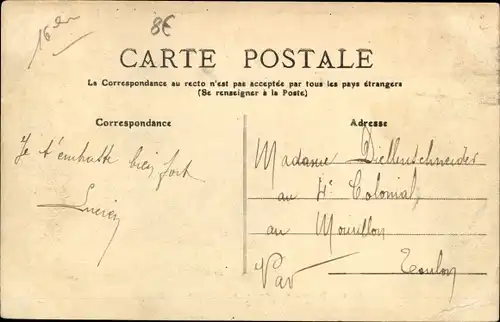 8€
CARTE POSTALE
La Correspondance au recto n'est pas acceptée par tous les pays étrangers
(Se renseigner à la Poste)
Correspondance
Adresse
Je t'embatte bien fort
Lucien
Madame Diellenschneider
au 4e Colonial,
au Mourillon
Toulon
Var